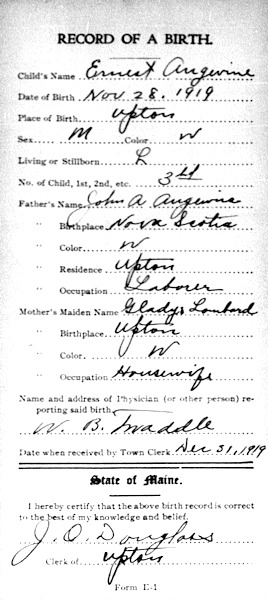 RECORD OF A BIRTH.
Child's Name Ernest Angevine
Date of Birth Nov 28. 1919
Place of Birth Upton
Sex M Color W
Living or Stillborn L
No. of Child, 1st, 2nd, etc. 3rd
Father's Name John A Angevine
" Birthplace Nova Scotia
" Color W
" Residence Upton
" Occupation Laborer
Mother's Maiden Name Gladys Lombard
" Birthplace Upton
" Color W
" Occupation Housewife
Name and address of Physician (or other person) re-
porting said birth
W. B. Twaddle
Date when received by Town Clerk Dec 31, 1919
State of Maine.
I hereby certify that the above birth record is correct
to the best of my knowledge and belief.
J. O. Douglass
Clerk of Upton
Form E-1